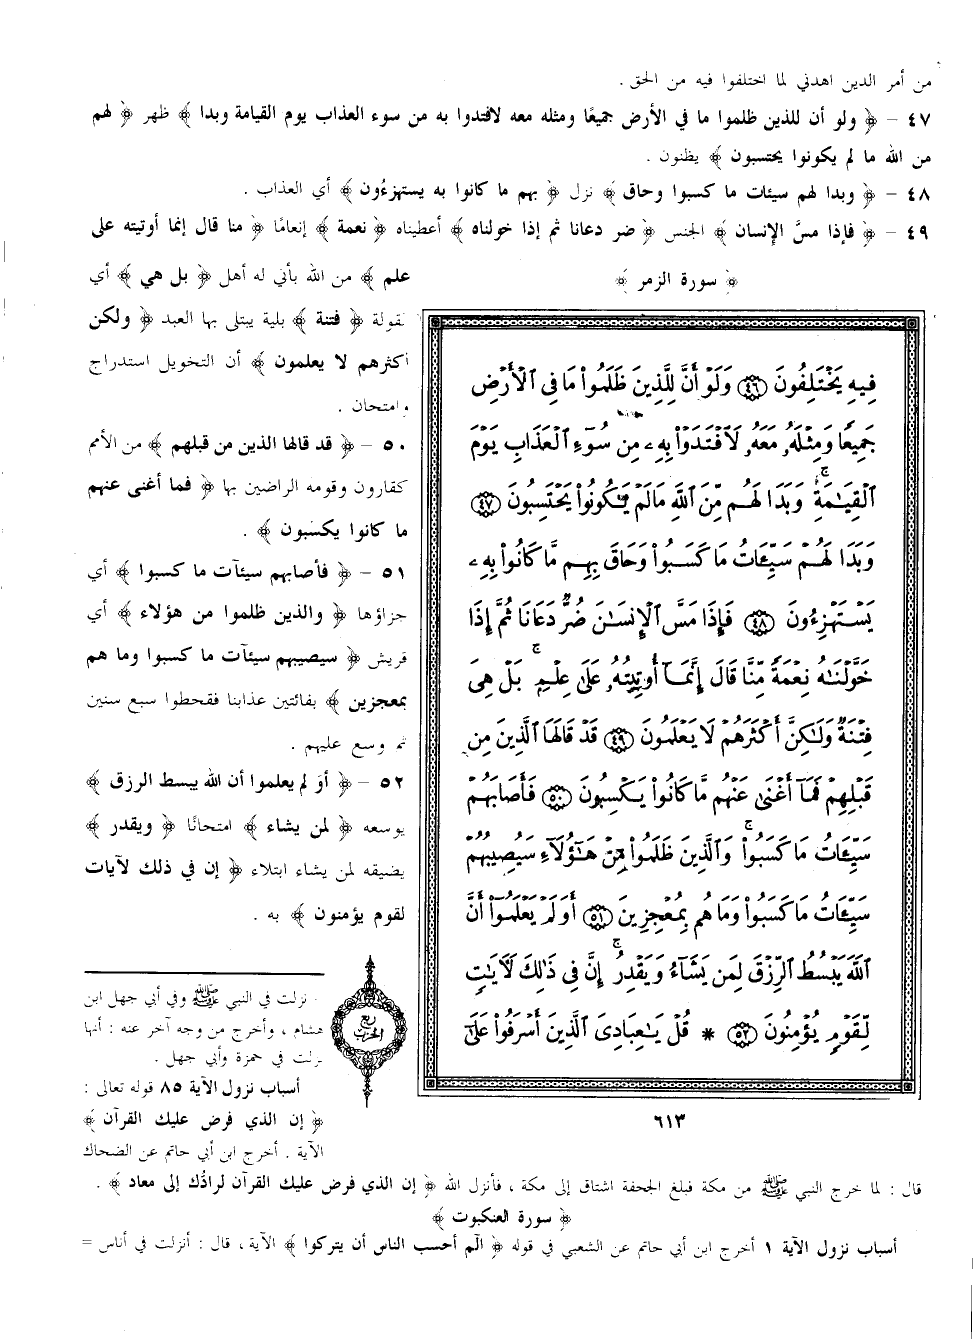 من أمر الدين اهدني لما اختلفوا فيه من الحق .
٤٧ - ﴿ ولو أن للذين ظلموا ما في الأرض جميعًا ومثله معه لافتدوا به من سوء العذاب يوم القيامة وبدا ﴾ ظهر ﴿ لهم
من الله ما لم يكونوا يحتسبون ﴾ يظنون .
٤٨ - ﴿ وبدا لهم سيئات ما كسبوا وحاق ﴾ نزل ﴿ بهم ما كانوا به يستهزءُون ﴾ أي العذاب .
٤٩ - ﴿ فإذا مسَّ الإنسان ﴾ الجنس ﴿ ضر دعانا ثم إذا خولناه ﴾ أعطيناه ﴿ نعمة ﴾ إنعامًا ﴿ منا قال إنما أوتيته على
علم ﴾ من الله بأني له أهل ﴿ بل هي ﴾ أي
لقولة ﴿ فتنة ﴾ بلية يبتلى بها العبد ﴿ ولكن
أكثرهم لا يعلمون ﴾ أن التخويل استدراج
وامتحان .
٥٠ - ﴿ قد قالها الذين من قبلهم ﴾ من الأمم
كقارون وقومه الراضين بها ﴿ فما أغنى عنهم
ما كانوا يكسبون ﴾ .
٥١ - ﴿ فأصابهم سيئآت ما كسبوا ﴾ أي
جزاؤها ﴿ والذين ظلموا من هؤلاء ﴾ أي
قريش ﴿ سيصيبهم سيئآت ما كسبوا وما هم
بمعجزين ﴾ بفائتين عذابنا فقحطوا سبع سنين
ثم وسع عليهم .
٥٢ - ﴿ أوَ لم يعلموا أن الله يبسط الرزق ﴾
يوسعه ﴿ لمن يشاء ﴾ امتحانًا ﴿ ويقدر ﴾
يضيقه لمن يشاء ابتلاء ﴿ إن في ذلك لآيات
لقوم يؤمنون ﴾ به .
﴿ سورة الزمر ﴾
فِيهِ يَخْتَلِفُونَ ٤٦ وَلَوْ أَنَّ لِلَّذِينَ ظَلَمُوا۟ مَا فِى ٱلْأَرْضِ
جَمِيعًا وَمِثْلَهُۥ مَعَهُۥ لَٱفْتَدَوْا۟ بِهِۦ مِن سُوٓءِ ٱلْعَذَابِ يَوْمَ
ٱلْقِيَـٰمَةِ ۚ وَبَدَا لَهُم مِّنَ ٱللَّهِ مَا لَمْ يَكُونُوا۟ يَحْتَسِبُونَ ٤٧
وَبَدَا لَهُمْ سَيِّـَٔاتُ مَا كَسَبُوا۟ وَحَاقَ بِهِم مَّا كَانُوا۟ بِهِۦ
يَسْتَهْزِءُونَ ٤٨ فَإِذَا مَسَّ ٱلْإِنسَـٰنَ ضُرٌّ دَعَانَا ثُمَّ إِذَا
خَوَّلْنَـٰهُ نِعْمَةً مِّنَّا قَالَ إِنَّمَآ أُوتِيتُهُۥ عَلَىٰ عِلْمٍۭ ۚ بَلْ هِىَ
فِتْنَةٌ وَلَـٰكِنَّ أَكْثَرَهُمْ لَا يَعْلَمُونَ ٤٩ قَدْ قَالَهَا ٱلَّذِينَ مِن
قَبْلِهِمْ فَمَآ أَغْنَىٰ عَنْهُم مَّا كَانُوا۟ يَكْسِبُونَ ٥٠ فَأَصَابَهُمْ
سَيِّـَٔاتُ مَا كَسَبُوا۟ ۚ وَٱلَّذِينَ ظَلَمُوا۟ مِنْ هَـٰٓؤُلَآءِ سَيُصِيبُهُمْ
سَيِّـَٔاتُ مَا كَسَبُوا۟ وَمَا هُم بِمُعْجِزِينَ ٥١ أَوَلَمْ يَعْلَمُوٓا۟ أَنَّ
ٱللَّهَ يَبْسُطُ ٱلرِّزْقَ لِمَن يَشَآءُ وَيَقْدِرُ ۚ إِنَّ فِى ذَٰلِكَ لَـَٔايَـٰتٍ
لِّقَوْمٍ يُؤْمِنُونَ ٥٢ * قُلْ يَـٰعِبَادِىَ ٱلَّذِينَ أَسْرَفُوا۟ عَلَىٰٓ
ربع
الحزب
٦١٣
نزلت في النبي ﷺ وفي أبي جهل ابن
هشام ، وأخرج من وجه آخر عنه : أنها
نزلت في حمزة وأبي جهل .
أسباب نزول الآية ٨٥ قوله تعالى :
﴿ إن الذي فرض عليك القرآن ﴾
الآية . أخرج ابن أبي حاتم عن الضحاك
قال : لما خرج النبي ﷺ من مكة فبلغ الجحفة اشتاق إلى مكة ، فأنزل الله ﴿ إن الذي فرض عليك القرآن لرادُّك إلى معاد ﴾ .
﴿ سورة العنكبوت ﴾
أسباب نزول الآية ١ أخرج ابن أبي حاتم عن الشعبي في قوله ﴿ الٓم أحسب الناس أن يتركوا ﴾ الآية ، قال : أنزلت في أناس =